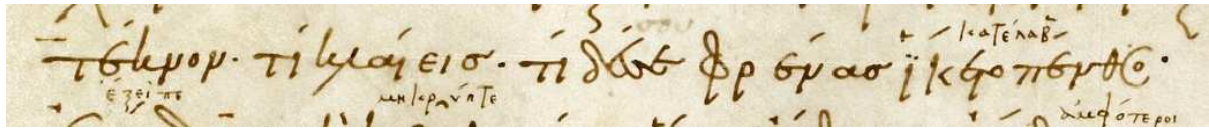 κατέλαβ
τέκνον· τί κλαίεις· τί δέ σε φρένας ἵκετο πένθος·
ἔξειπε μὴ κρύπτε ἀμφότεροι